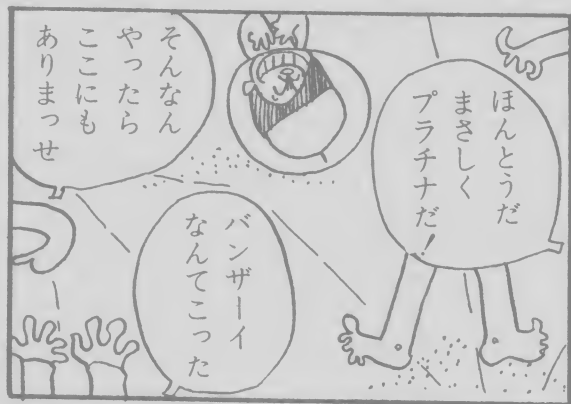 ほんとうだ
まさしく
プラチナだ!
バンザーイ
なんてこった
そんなん
やったら
ここにも
ありまっせ